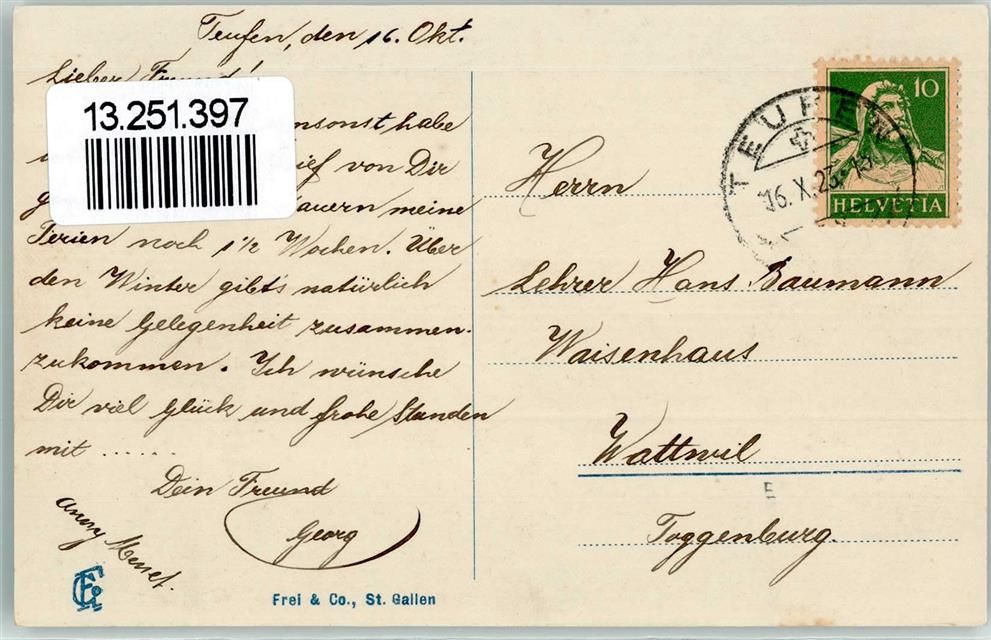 Teufen, den 16. Okt.
Lieber Freund!
13.251.397
nsonst habe
ief von Dir
auern meine
Ferien noch 1½ Wochen. Über
den Winter gibt's natürlich
keine Gelegenheit zusammen-
zukommen. Ich wünsche
Dir viel Glück und frohe Stunden
mit ......
Dein Freund
Georg
Frei & Co., St. Gallen
10
HELVETIA
TEUFEN
16. X. 23
Herrn
Lehrer Hans Baumann
Waisenhaus
Wattwil
E
Toggenburg